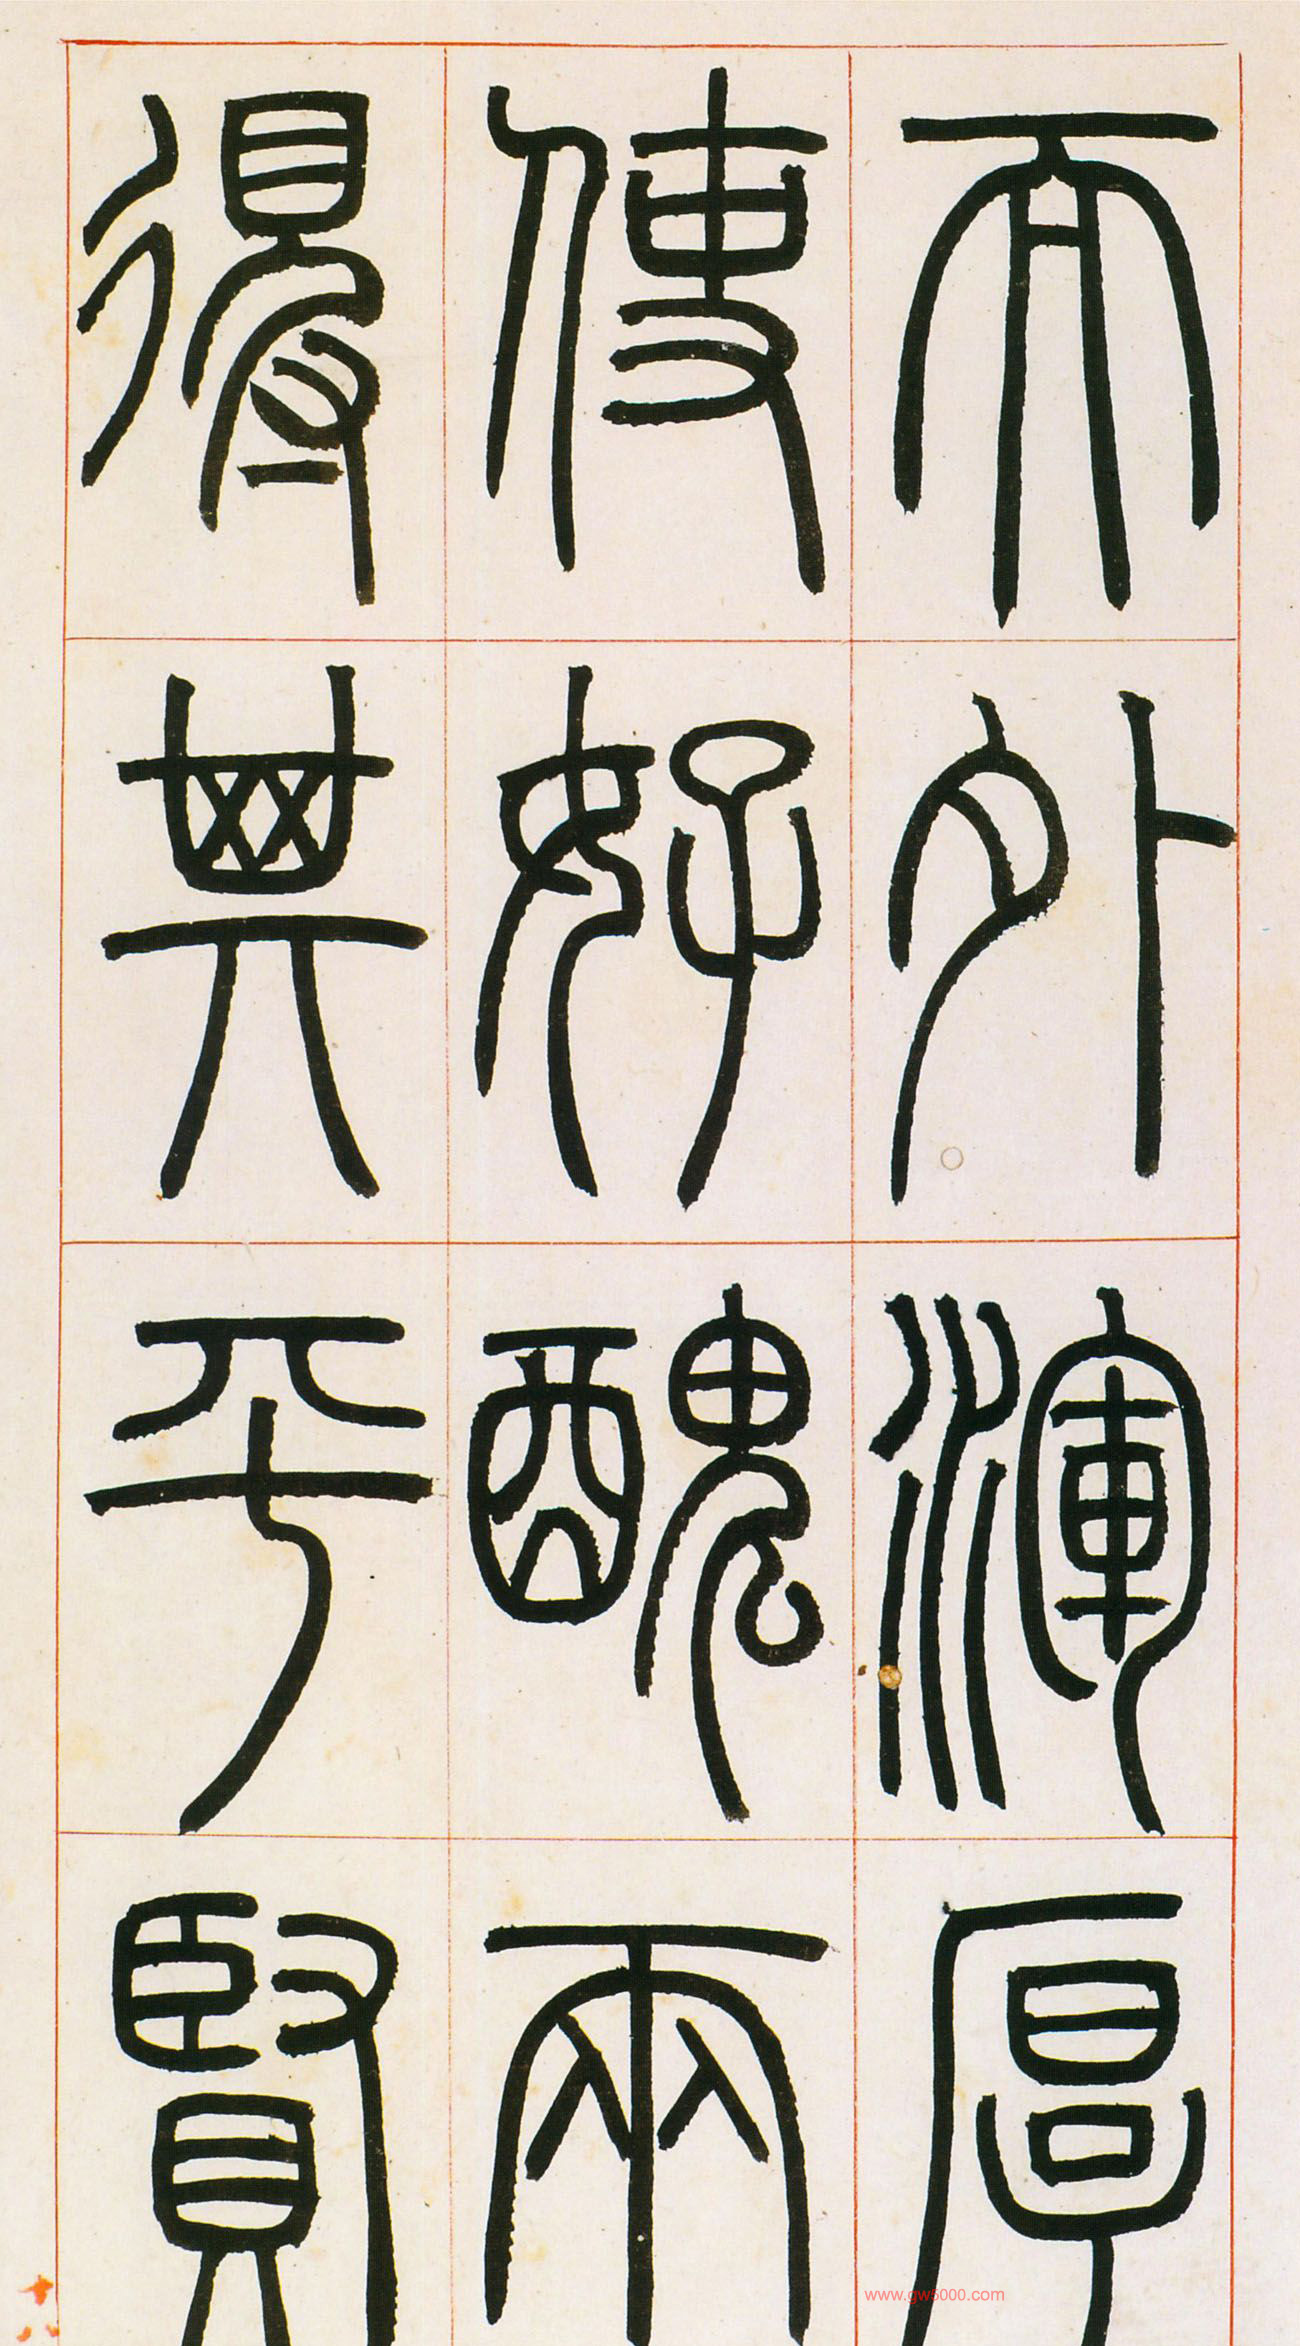 而外渾厚
使好醜兩
得其平賢
十八
www.gw5000.com